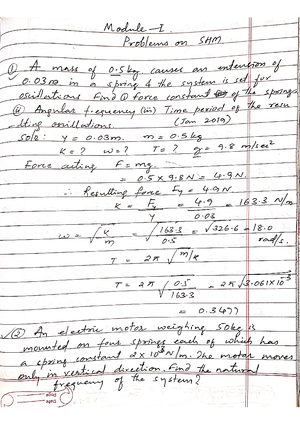 Module-I
Problems on SHM
① A mass of 0.5kg causes an extension of
0.03m in a spring & the system is set for
oscillations. Find ① force constant of the spring
(ii) Angular frequency (iii) Time period of the resu
-lting oscillations. (Jan 2019)
Soln: y = 0.03m. m = 0.5kg
K = ? ω = ? T = ? g = 9.8 m/sec²
Force acting F = mg.
= 0.5 x 9.8 N = 4.9N.
∴ Resulting force Fy = 4.9N
K = Fy/y = 4.9/0.03 = 163.3 N/m
ω = √(K/m) = √(163.3/0.5) = √326.6 = 18.0 rad/s.
T = 2π √m/k
T = 2π √(0.5/163.3) = 2π √3.061x10⁻³
= 0.3477
② An electric motor weighing 50kg is
mounted on four springs each of which has
a spring constant 2x10³N/m. The motor moves
only in vertical direction. Find the natural
frequency of the system?